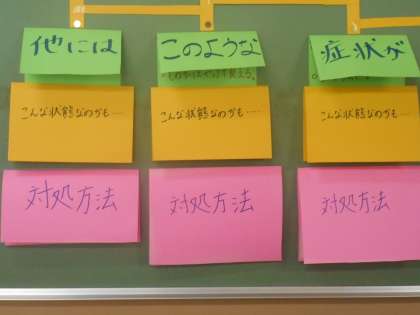 他には
このような
症状が
こんな状態なのかも……
こんな状態なのかも……
こんな状態なのかも……
対処方法
対処方法
対処方法